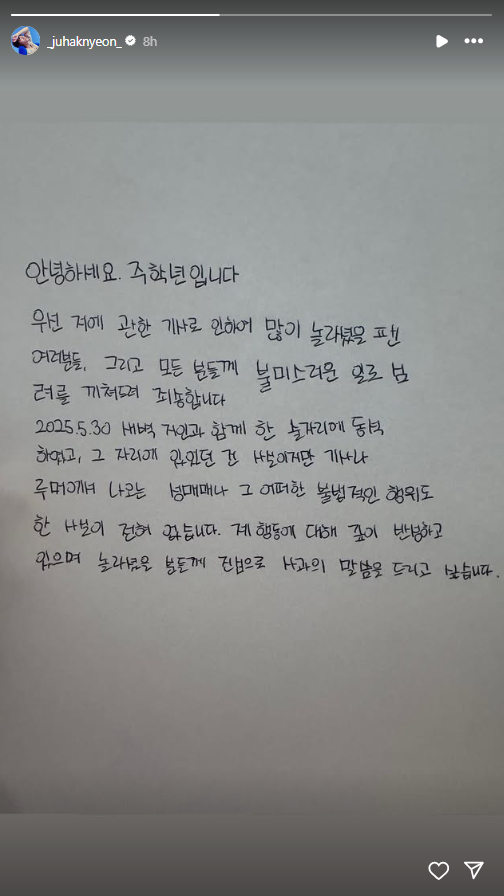 _juhaknyeon_ 8h
안녕하세요. 주학년입니다
우선 저에 관한 기사로 인하여 많이 놀라셨을 팬
여러분들, 그리고 모든 분들께 불미스러운 일로 심
려를 끼쳐드려 죄송합니다
2025.5.30 새벽 지인과 함께 한 술자리에 동석
하였고, 그 자리에 있었던 건 사실이지만 기사나
루머에서 나오는 성매매나 그 어떠한 불법적인 행위도
한 사실이 전혀 없습니다. 제 행동에 대해 깊이 반성하고
있으며 놀라셨을 분들께 진심으로 사과의 말씀을 드리고 싶습니다.